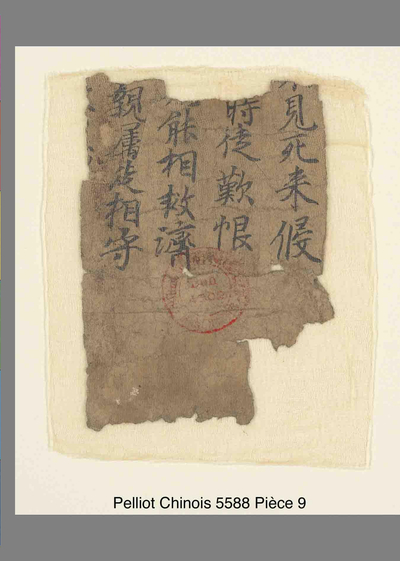 見死来侵
時徒歎恨
能相救濟
親屬徒相守
Pelliot Chinois 5588 Pièce 9